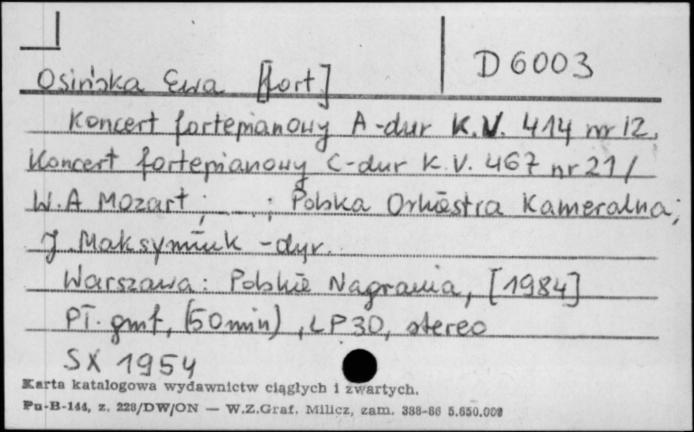 D 6003
Osińska Ewa [fort]
Koncert fortepianowy A-dur K.V. 414 nr 12.
Koncert fortepianowy C-dur K.V. 467 nr 21 /
W.A Mozart ; ... ; Polska Orkiestra Kameralna ;
J. Maksymiuk - dyr.
Warszawa : Polskie Nagrania, [1984]
Pł. gmf, (50 min), LP30, stereo
SX 1954
Karta katalogowa wydawnictw ciągłych i zwartych.
Pu-B-144, z. 228/DW/ON — W.Z.Graf. Milicz, zam. 388-86 5.650.000